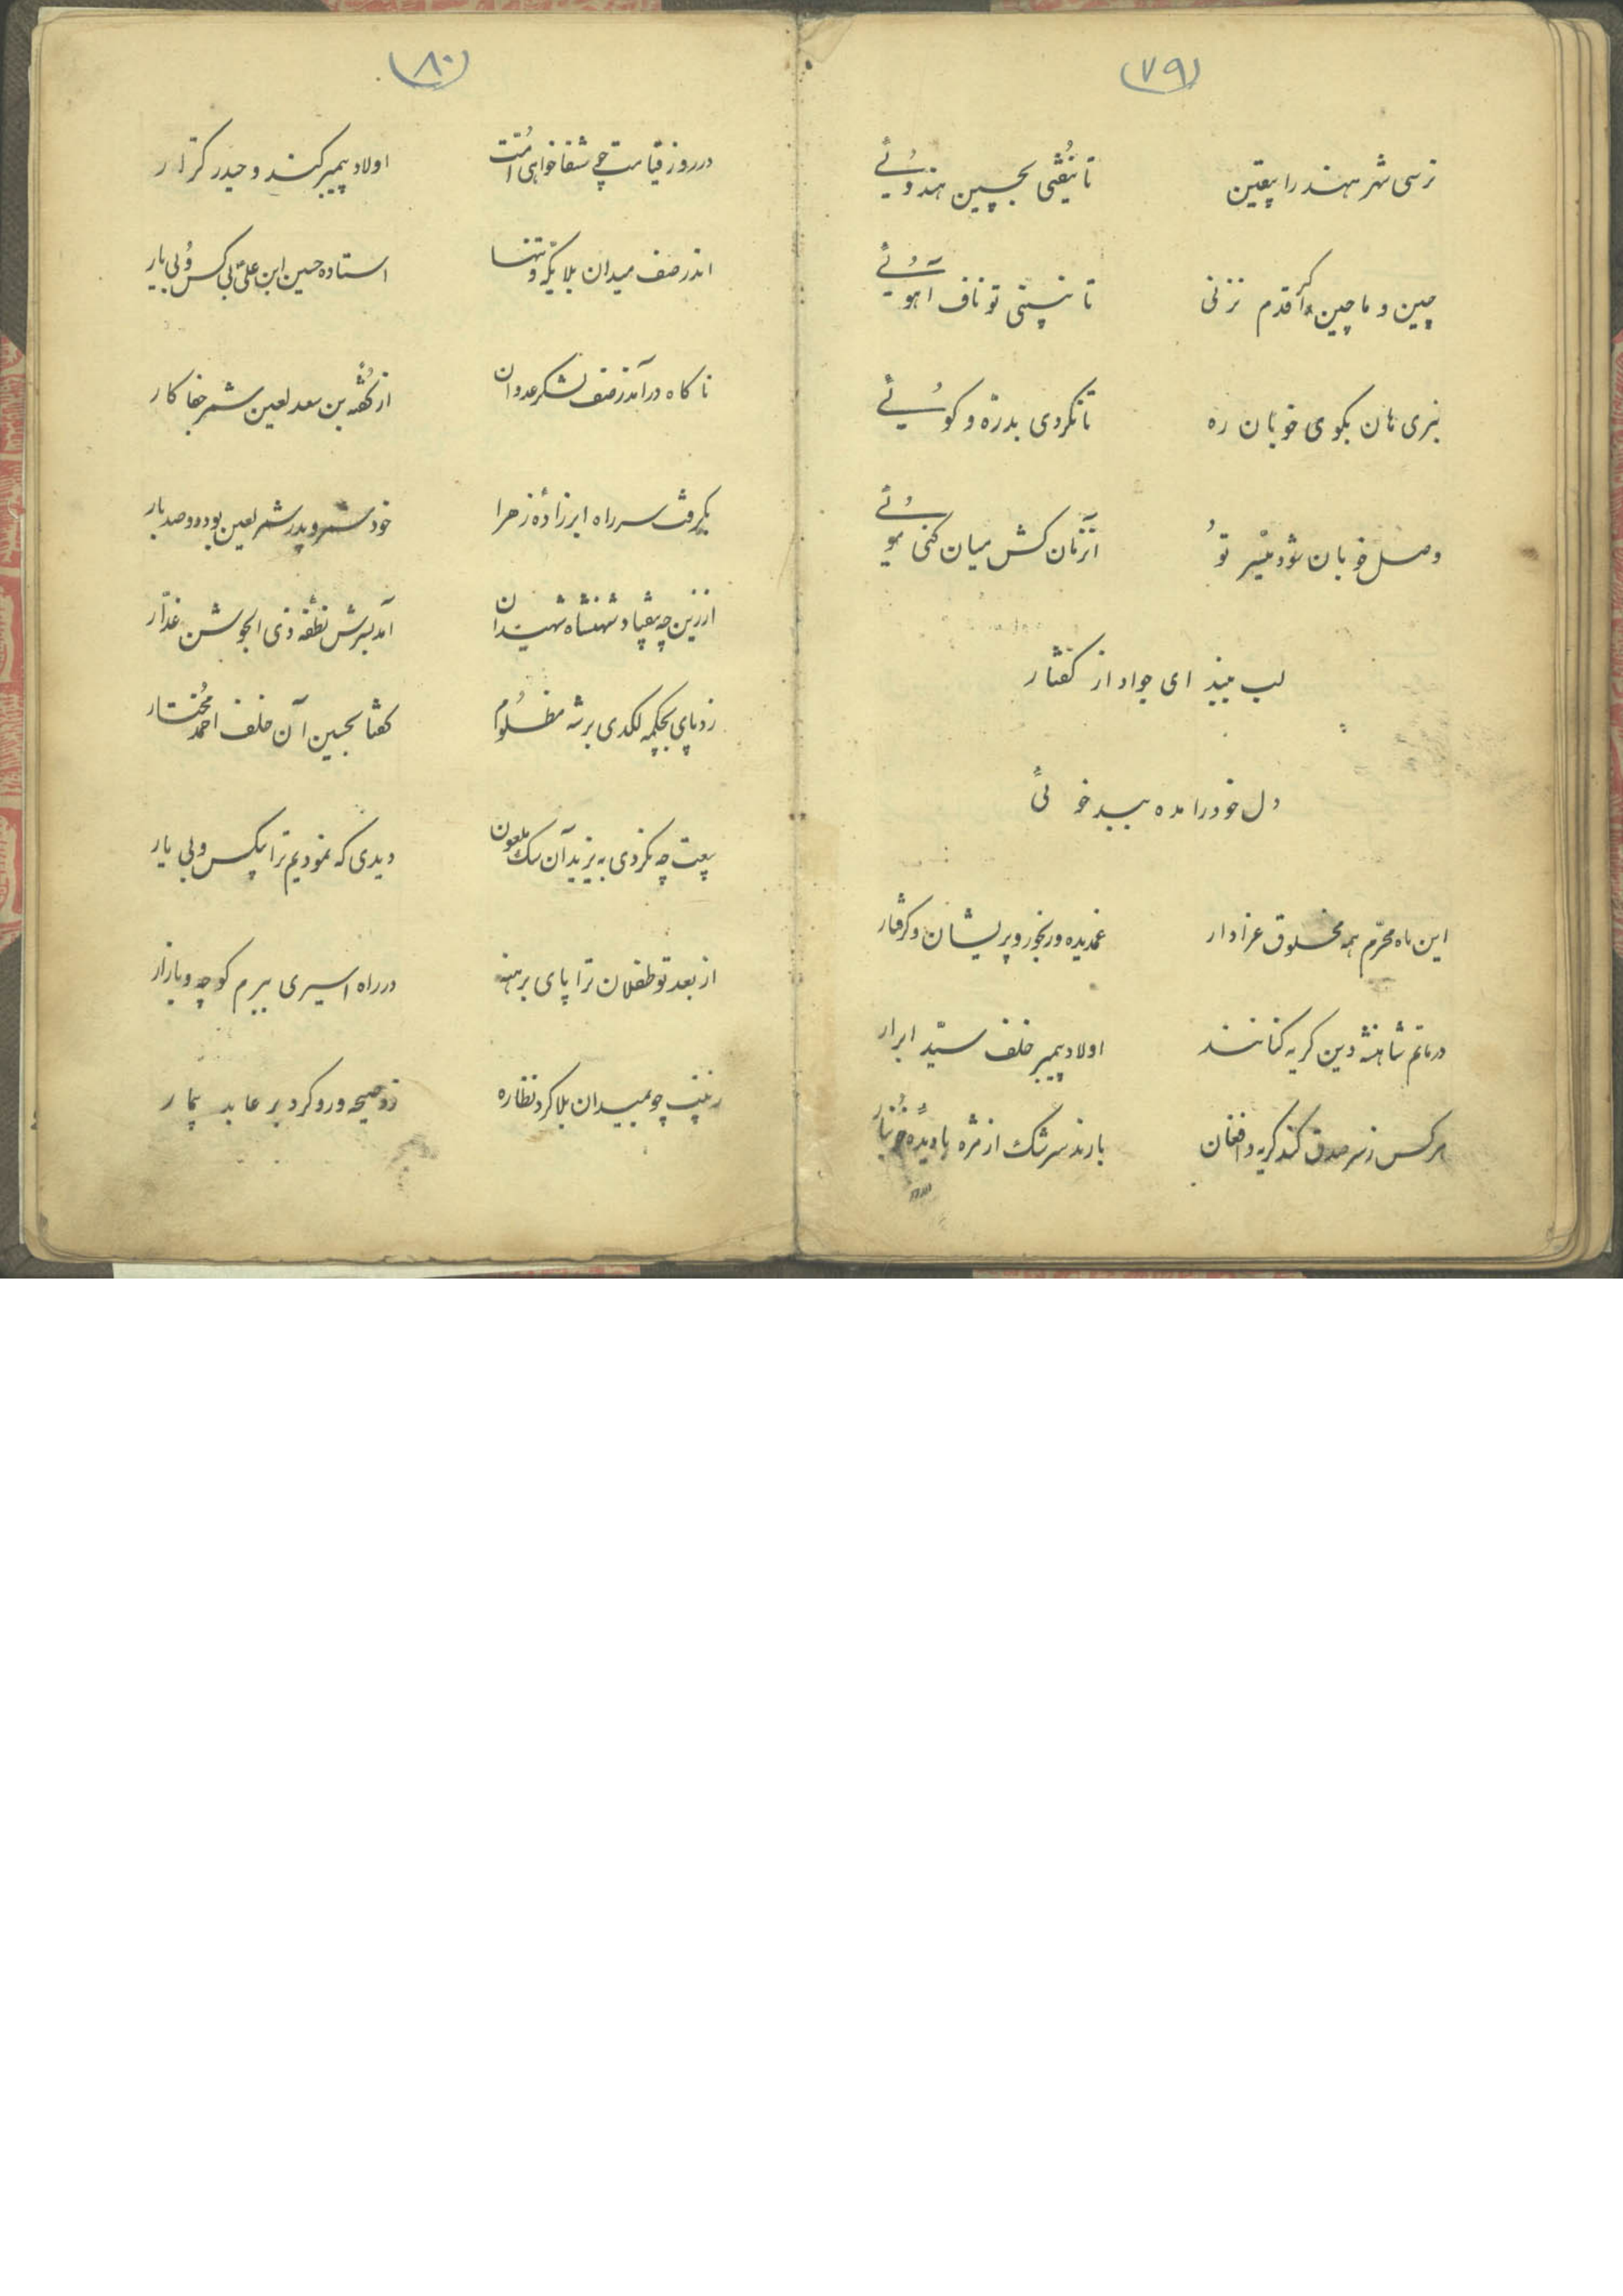 (۷۹)
نرسی شهر هند را بیقین تا نیفتی بچین هندوئے
چین و ماچین اگر قدم نزنی تا نبستی تو ناف آهوئے
نبری هان بکوی خوبان ره تا نگردی بدره و کوئے
وصل خوبان شود میسّر تو آنزمان کش میان کنی موئے
لب ببند ای جواد از گفتار
دل خود را مده ببدخوئی
این ماه محرّم همه مخلوق عزادار غمدیده و رنجور و پریشان و گرفتار
در ماتم شاهنشه دین گریه کنانند اولاد پیمبر خلف سیّد ابرار
هر کس ز سر صدق کند گریه و افغان بارند سرشک از مژه با دیدهٔ خونبار
(۸۰)
در روز قیامت چه شفاخواهی امّت اولاد پیمبر کنند و حیدر کرّار
اندر صف میدان بلا یکّه و تنها استاده حسین ابن علیّ بی کس و بی یار
ناگاه درآمد ز صف لشکر عدوان از گفتهٔ بن سعد لعین شمر جفاکار
بگرفت سر راه ابر زادهٔ زهرا خود شمر و پدر شمر لعین بود دوصد بار
از زین چه بیفتاد شهنشاه شهیدان آمد بسرش نطفه ذی الجوشن غدّار
زد پای بچکمه لگدی بر شه مظلوم گفتا بحسین آن خلف احمد مختار
بیعت چه نکردی به یزید آن سگ ملعون دیدی که نمودیم ترا بیکس و بی یار
از بعد تو طفلان ترا پای برهنه در راه اسیری ببرم کوچه و بازار
زینب چو بمیدان بلا کرد نظاره زد صیحه و رو کرد بر عابد بیمار